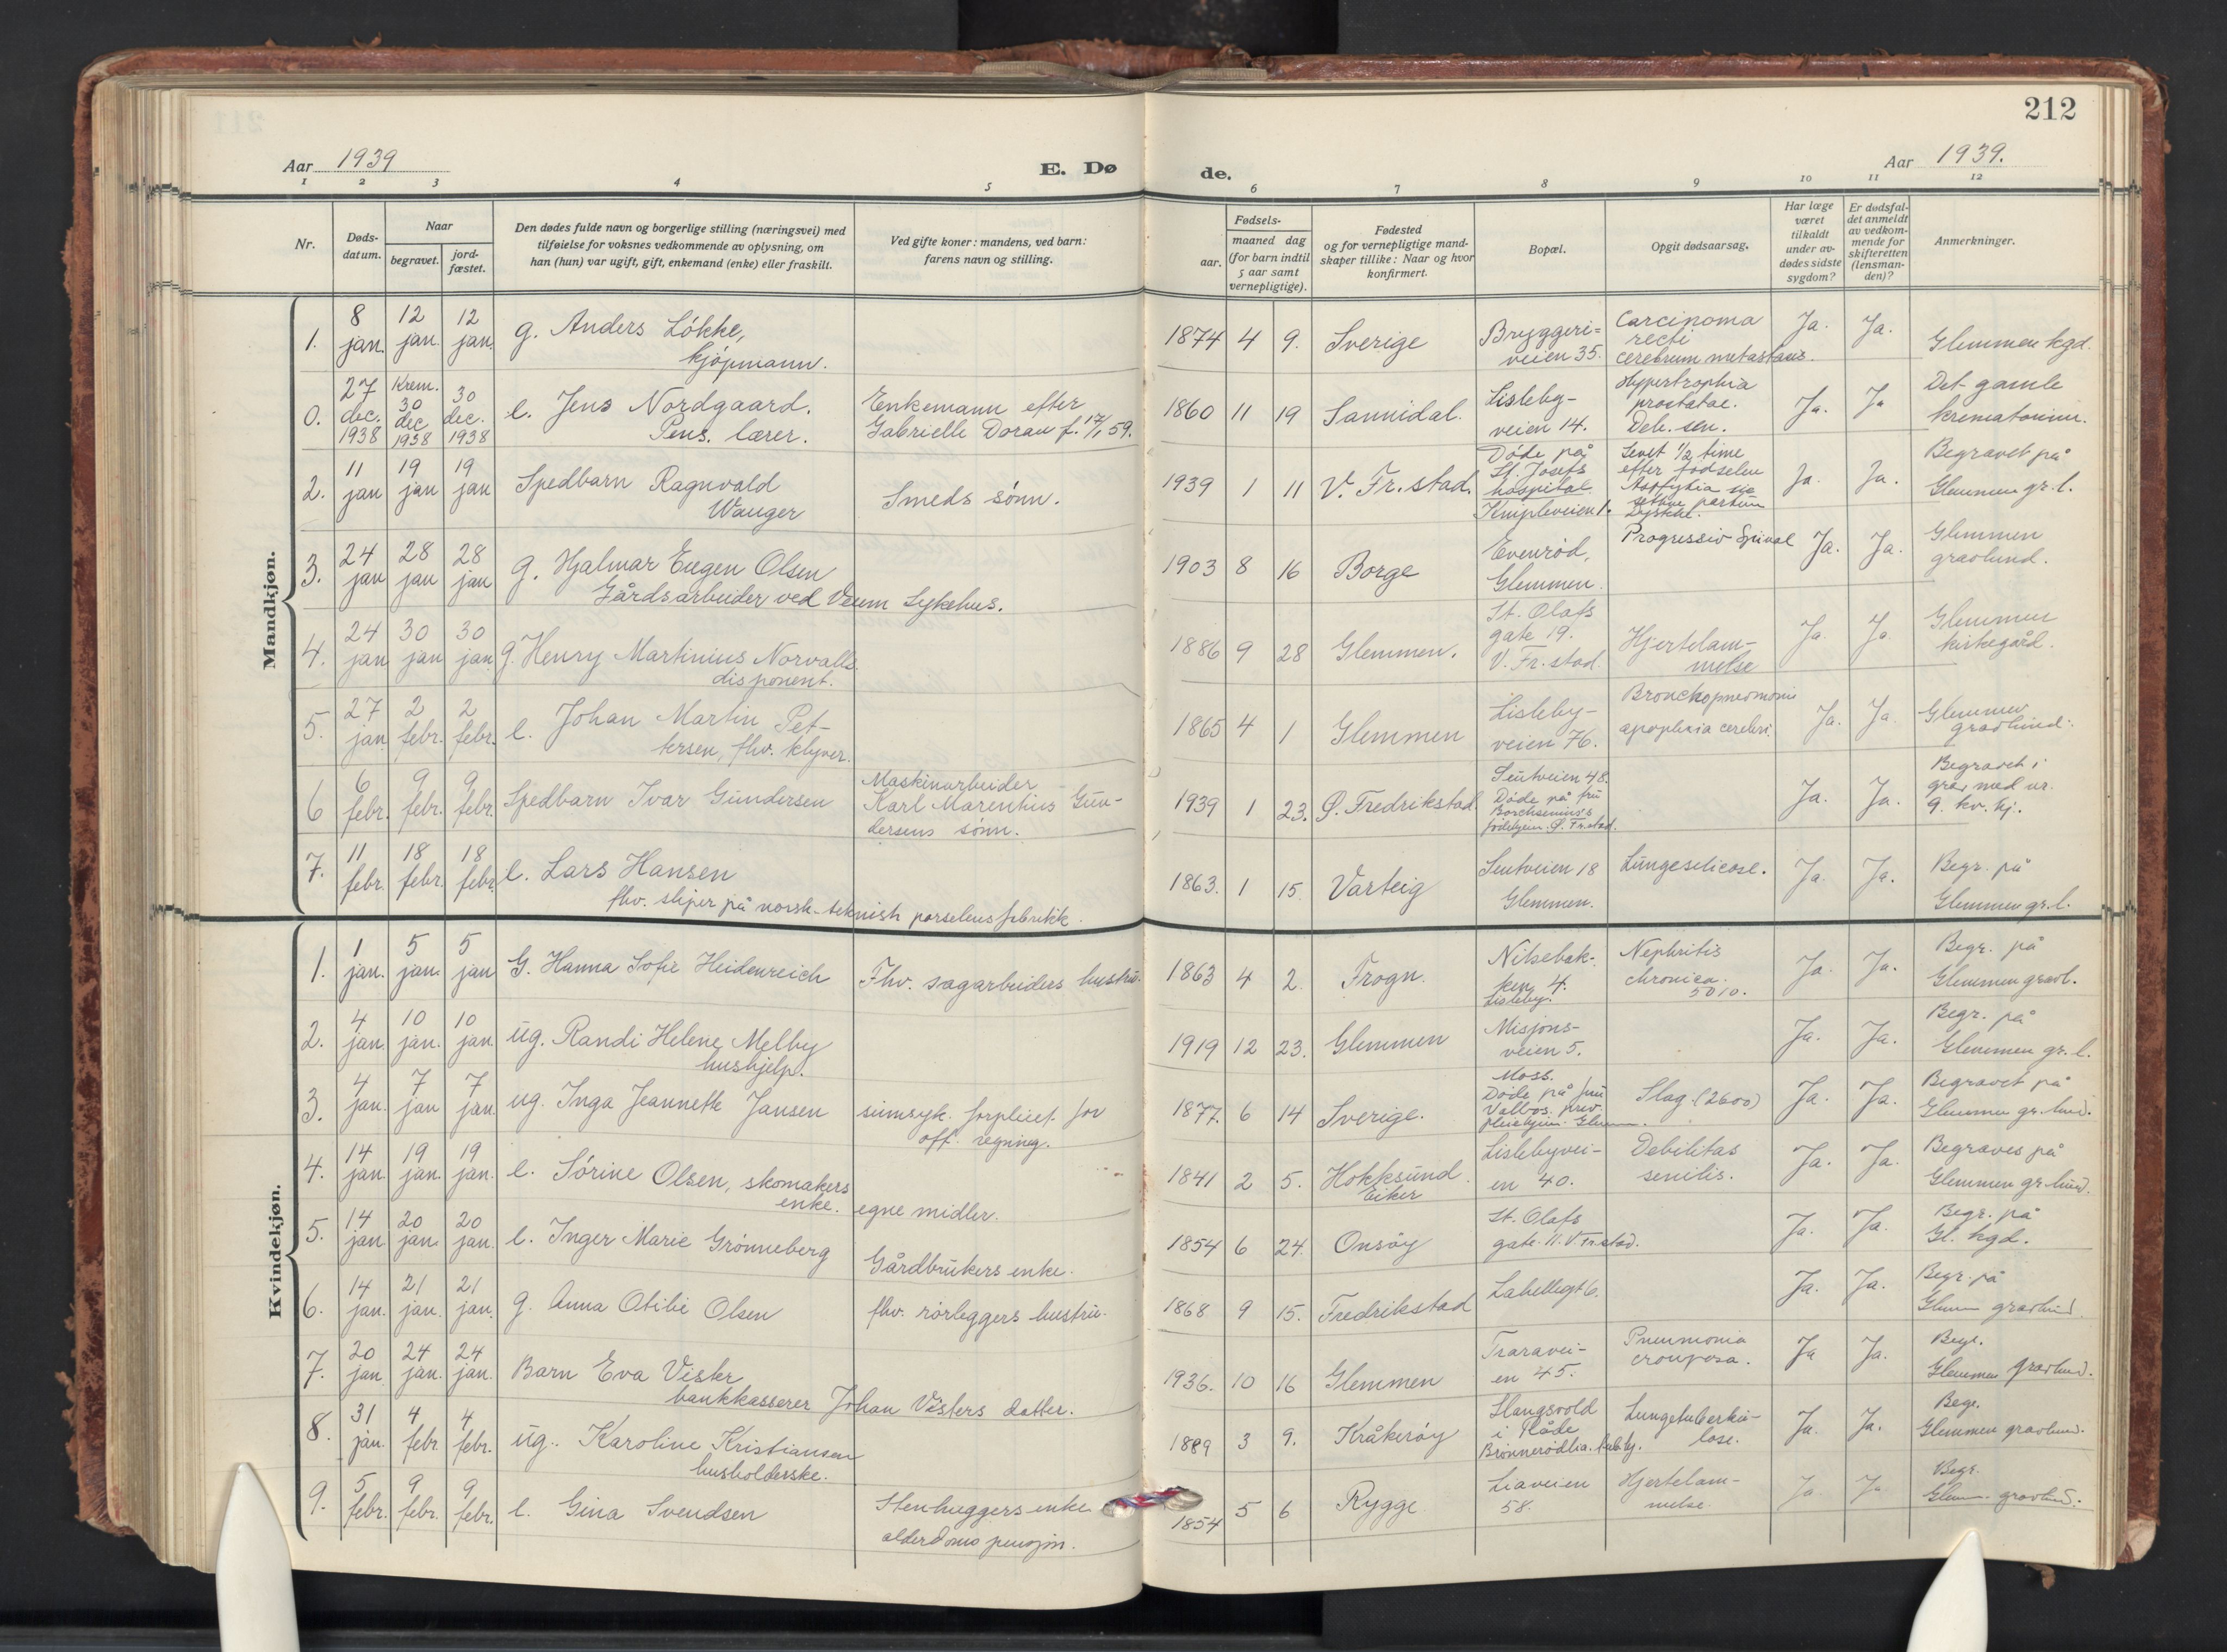 212
Aar 1939
E. Døde.
Aar 1939.
1 2 3 4 5 6 7 8 9 10 11 12
Nr.
Døds-
datum.
Naar
begravet.
jord-
fæstet.
Den dødes fulde navn og borgerlige stilling (næringsvei) med
tilføielse for voksnes vedkommende av oplysning, om
han (hun) var ugift, gift, enkemand (enke) eller fraskilt.
Ved gifte koner: mandens, ved barn:
farens navn og stilling.
Fødsels-
aar.
maaned dag
(for barn indtil
5 aar samt
vernepligtige).
Fødested
og for vernepligtige mand-
skaper tillike: Naar og hvor
konfirmert.
Bopæl.
Opgit dødsaarsag.
Har læge
været
tilkaldt
under av-
dødes sidste
sygdom?
Er dødsfal-
det anmeldt
av vedkom-
mende for
skifteretten
(lensman-
den)?
Anmerkninger.
Mandkjøn.
1. 8 jan. 12 jan. 12 jan. g. Anders Lökke,
kjöpmann.
1874 4 9. Sverige
Bryggeri=
veien 35.
Carcinoma
recti
cerebrum metastasis.
Ja. Ja.
Glemmen kgd.
0. 27 dec. 1938 Krem. 30 dec 1938 30 dec. 1938 e. Jens Nordgaard.
Pens. lærer.
Enkemann efter
Gabrielle Dorau f. 17/1 59.
1860 11 19 Sannidal.
Lisleby-
veien 14.
Hypertrophia
prostatae.
Deb. sen.
Ja. Ja
Det gamle
krematorium.
2. 11 jan 19 jan 19 jan Spedbarn Ragnvald
Wauger
Smeds sönn.
1939 1 11 V. Fr.stad.
Döde på
St. Josefs
hospital
Knipleveien 1.
Levet 1/2 time
efter fodselen
partum
Ja. Ja.
Begravet på
Glemmen gr. l.
3. 24 jan 28 jan 28 jan g. Hjalmar Eugen Olsen
Gårdsarbeider ved Veum Sykehus.
1903 8 16 Borge
Evenröd,
Glemmen.
Progressiv Spinal
Ja. Ja.
Glemmen
gravlund.
4. 24 jan 30 jan 30 jan g. Henry Martinius Norvalls
disponent.
1886 9 28 Glemmen.
St. Olafs
gate 19.
V. Fr.stad.
Hjertelam-
melse
Ja Ja
Glemmen
kirkegård.
5. 27 jan 2 febr. 2 febr. e. Johan Martin Pet-
tersen, fhv. klyver.
1865 4 1 Glemmen
Lisleby-
veien 76.
Bronchopneomoni
apoplexia cerebri.
Ja. Ja.
Glemmen
gravlund.
6 6 febr. 9 febr. 9 febr. Spedbarn Ivar Gundersen
Maskinarbeider
Karl Marentius Gun-
dersens sönn.
1939 1 23. Ø. Fredrikstad.
Seutveien 48.
Döde på fru
Borchsenius's
födehjem Ø. Fr.stad.
Ja. Ja.
Begravet i
grav med nr.
9. kv. kj.
7. 11 febr. 18 febr. 18 febr. e. Lars Hansen
fhv. sliper på norsk-teknisk porselensfabrikk.
1863. 1 15 Varteig
Seutveien 18
Glemmen.
Lungesilicose.
Ja. Ja.
Begr. på
Glemmen gr. l.
Kvindekjøn.
1. 1 jan. 5 jan. 5 jan G. Hanna Sofie Heidenreich
Fhv. sagarbeiders hustru.
1863 4 2. Frogn.
Nilsebak-
ken 4.
Lisleby.
Nephritis
chronica.
5010.
Ja. Ja.
Begr. på
Glemmen gravl.
2. 4 jan. 10 jan. 10 jan. ug. Randi Helene Melby
hushjelp.
1919 12 23. Glemmen
Misjons-
veien 5.
Ja. Ja.
Begr. på
Glemmen gr. l.
3. 4 jan. 7 jan 7 jan. ug. Inga Jeannette Jansen
sinnsyk. forpleiet for
off. regning.
1877. 6 14 Sverige.
Moss.
Döde på fru
Valbos. priv.
pleiehjem
Slag. (2600)
Ja. Ja.
Begravet på
Glemmen gr. lund.
4. 14 jan. 19 jan. 19 jan. e. Sörine Olsen, skomakers
enke. egne midler.
1841 2 5. Hokksund.
Eiker
Lislebyvei-
en 40.
Debilitas
senilis.
Ja. Ja.
Begraves på
Glemmen gr. lund.
5. 14 jan 20 jan. 20 jan. e. Inger Marie Grönneberg
Gårdbrukers enke.
1854 6 24. Onsöy
St. Olafs
gate 11. V. Fr.stad.
Ja. Ja.
Begr. på
Gl. kgd.
6. 14 jan. 21 jan. 21 jan. g. Anna Otilie Olsen
fhv. rörleggers hustru.
1868 9 15. Fredrikstad
Labellesgt 6.
Ja. Ja.
Begr. på
gravlund.
7. 20 jan. 24 jan. 24 jan. Barn Eva Vister
bankkasserer Johan Visters datter.
1936. 10 16 Glemmen
Traravei-
en 45.
Pneumonia
crouposa.
Ja Ja.
Begr.
Glemmen gravlund.
8. 31 jan. 4 febr 4 febr. ug. Karoline Kristiansen
husholderske.
1889 3 9. Kråkeröy
i Råde
Lungetuberku-
lose.
Ja. Ja.
Begr.
Glemmen gravlund.
9. 5 febr. 9 febr. 9 febr. e. Gina Svendsen
Stenhuggers enke
alderdoms pensjon.
1854 5 6 Rygge
Liaveien
58.
Hjertelam-
melse.
Ja Ja
Begr.
gravlund.